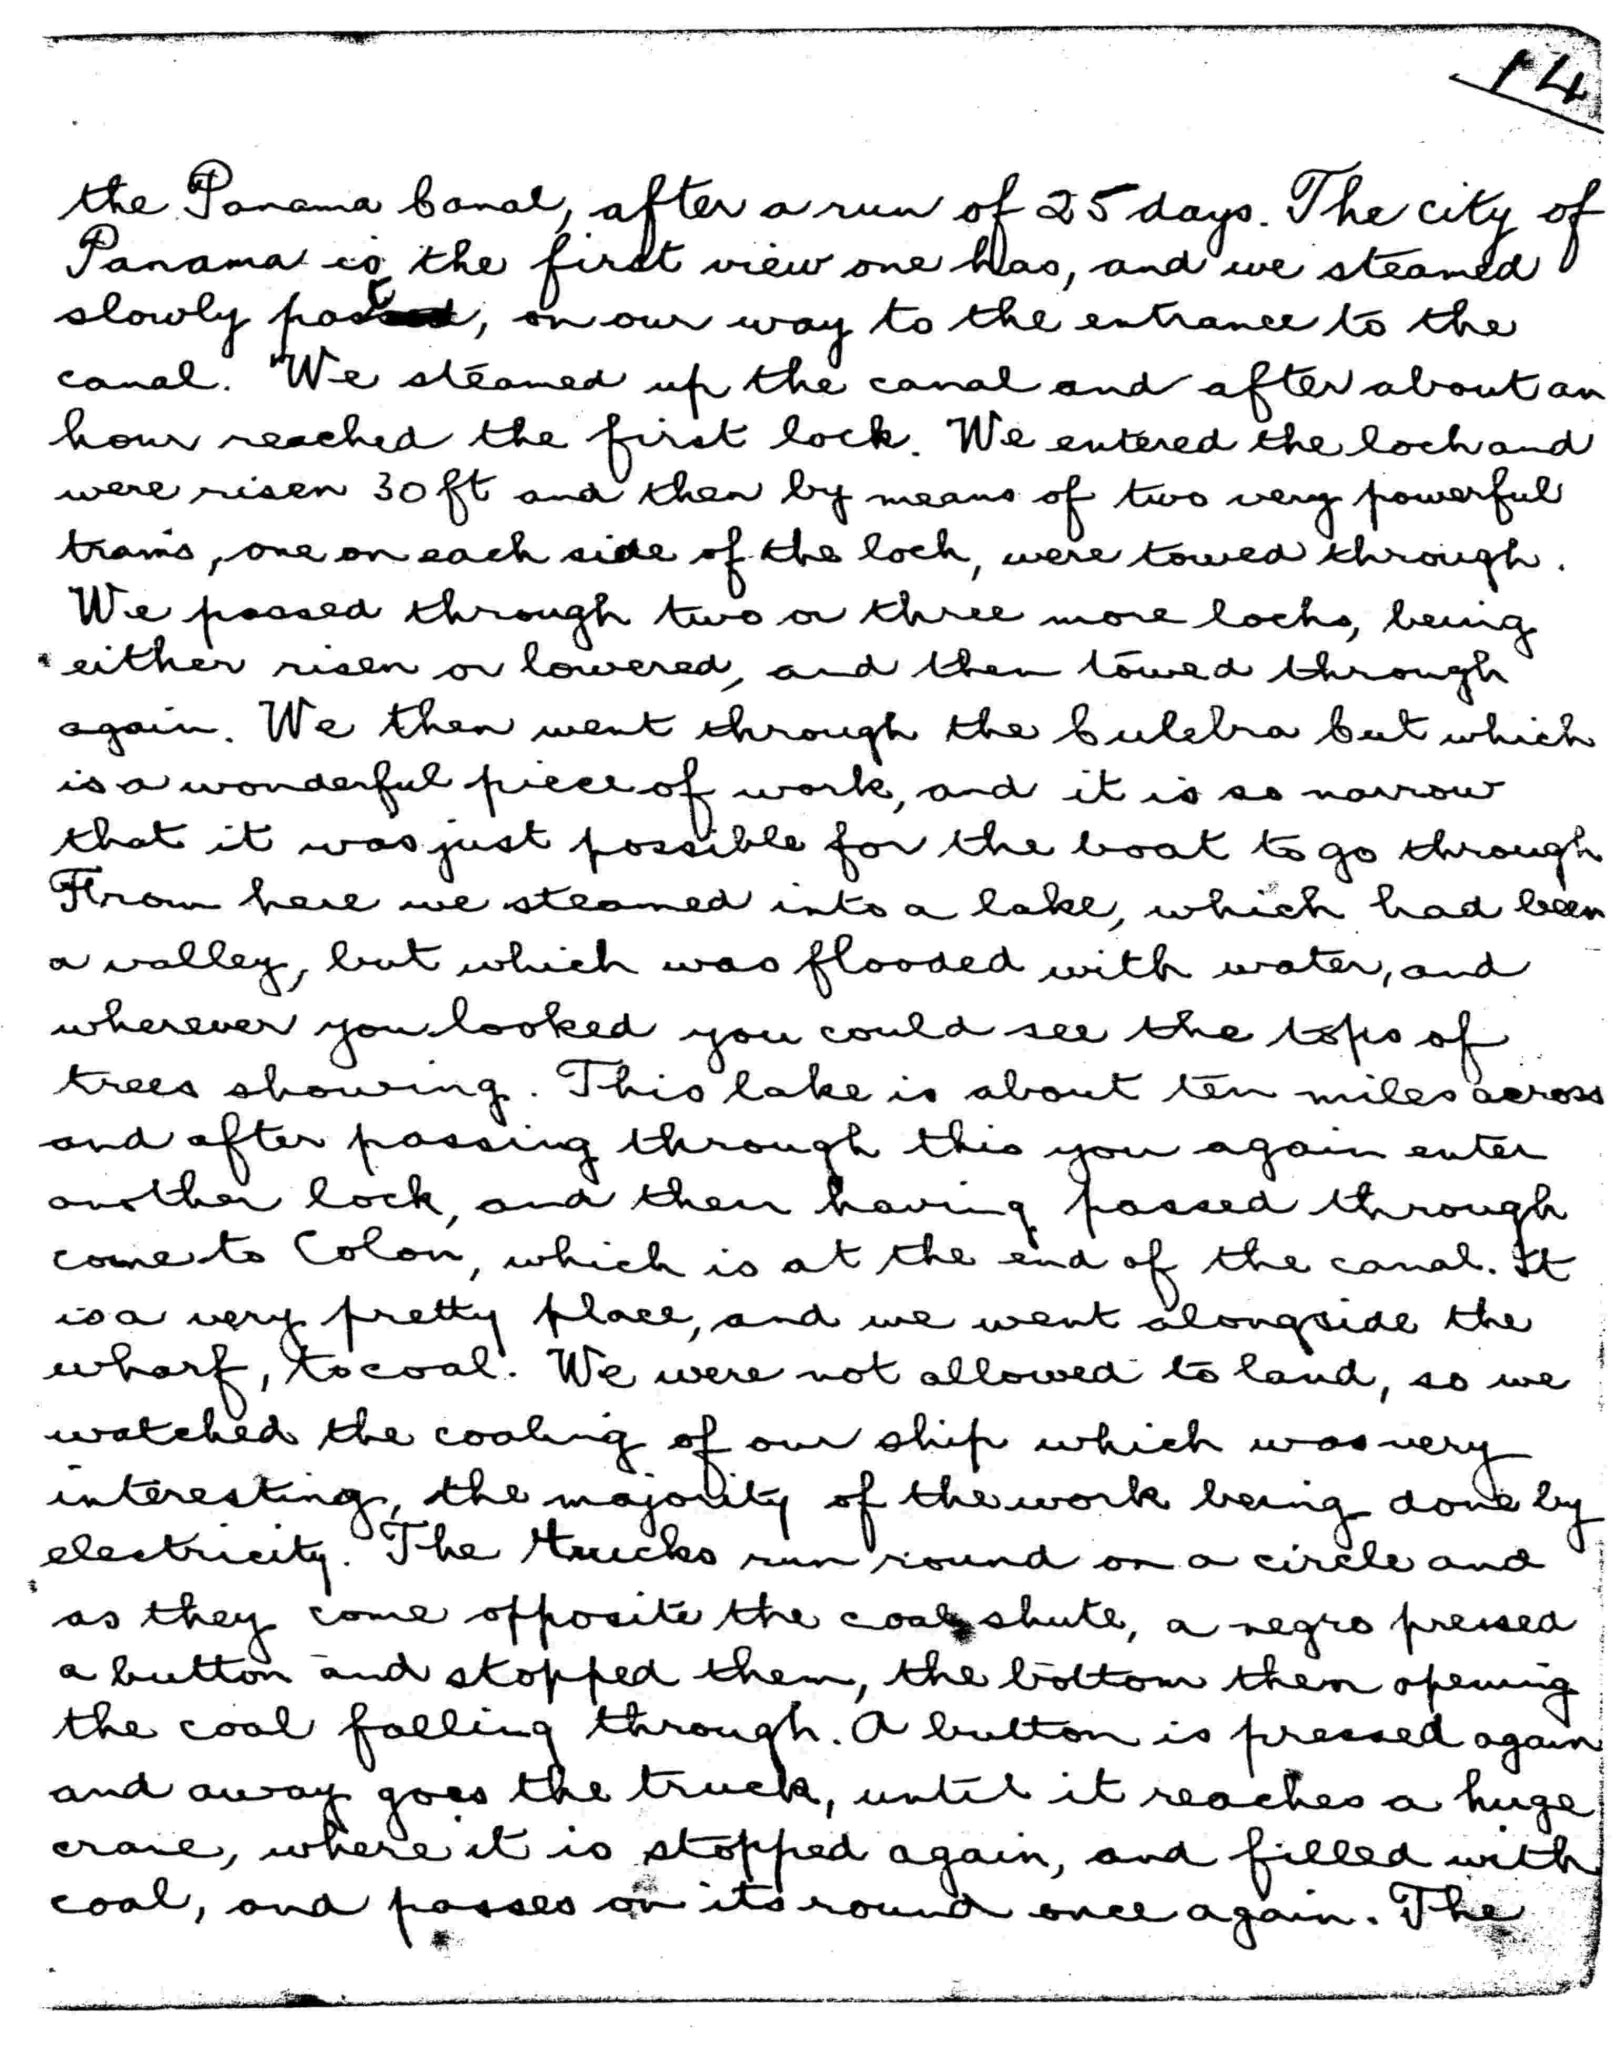 14
the Panama Canal, after a run of 25 days. The city of
Panama is the first view one has, and we steamed
slowly past, on our way to the entrance to the
canal. We steamed up the canal and after about an
hour reached the first lock. We entered the loch and
were risen 30ft and then by means of two very powerful
trams, one on each side of the loch, were towed through.
We passed through two or three more lochs, being
either risen or lowered, and then towed through
again. We then went through the Culebra Cut which
is a wonderful piece of work, and it is so narrow
that it was just possible for the boat to go through
From here we steamed into a lake, which had been
a valley, but which was flooded with water, and
wherever you looked you could see the tops of
trees showing. This lake is about ten miles across
and after passing through this you again enter
another lock, and then having passed through
come to Colon, which is at the end of the canal. It
is a very pretty place, and we went alongside the
wharf, to coal. We were not allowed to land, so we
watched the coaling of our ship which was very
interesting, the majority of the work being done by
electricity. The trucks run round on a circle and
as they come opposite the coal shute, a negro pressed
a button and stopped them, the bottom then opening
the coal falling through. A button is pressed again
and away goes the truck, until it reaches a huge
crane, where it is stopped again, and filled with
coal, and passes on its round once again. The